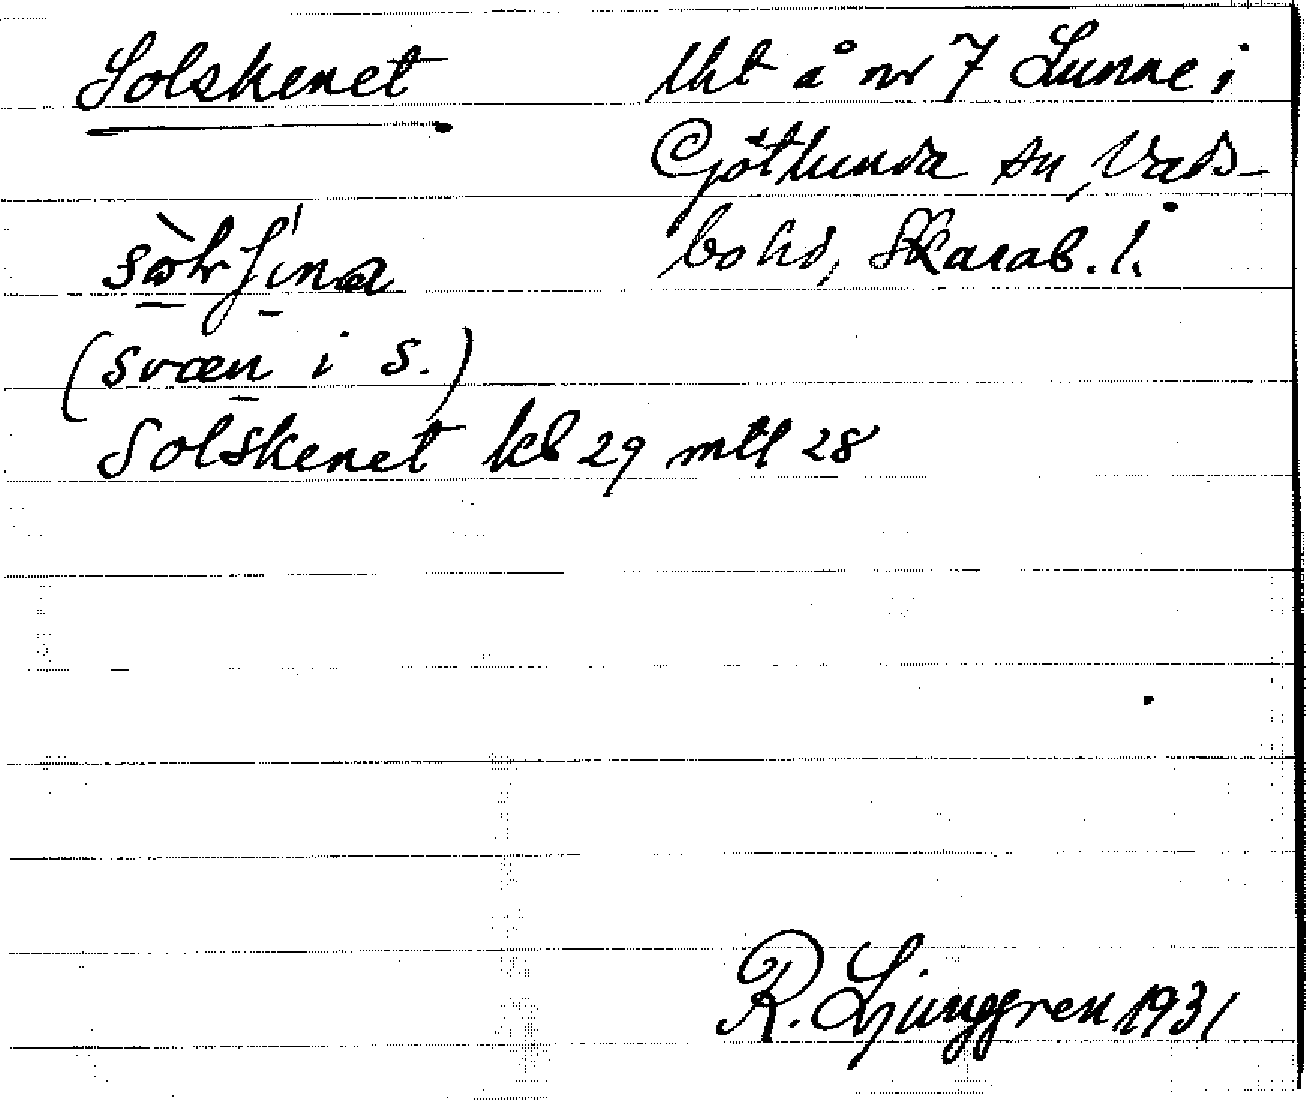 Solskenet
Uht å nr 7 Lunne i
Götlunda sn, Vads-
bo hd, Skarab. l.
(svæn i s.)
Solskenet kb 29 mtl 28
R. Ljunggren 1931